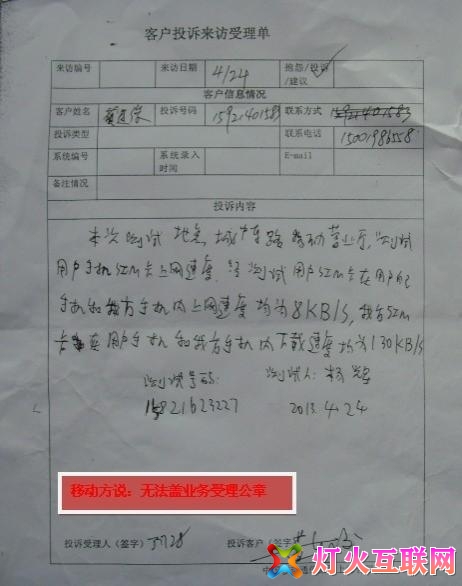 客户投诉来访受理单
来访编号 来访日期 4/24 抱怨/投诉/建议
客户信息情况
客户姓名 投诉号码 15921401583 联系方式
投诉类型 联系电话 15001986558
系统编号 系统录入时间 E-mail
备注情况
投诉内容
本次测试地点 路移动营业厅,测试
用户手机SIM卡上网速度. 经测试用户SIM卡在用户的
手机和我方手机内上网速度均为8KB/s,我方SIM
卡在用户手机和我方手机内下载速度均为130KB/s
测试号码: 测试人: 杨
15821623227 2013.4.24
移动方说:无法盖业务受理公章
投诉受理人(签字) 投诉客户(签字)
灯火互联网